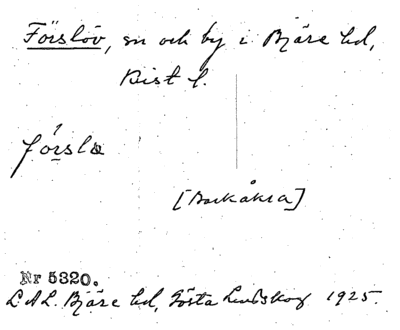 Förslöv, sn och by i Bjäre hd,
Krist l.
fórsla
[Backåkra]
Nr 5320.
L A L. Bjäre hd, Gösta Lindskog 1925.